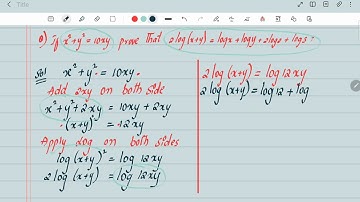 Title
Q) If x²+y²=10xy prove that 2log(x+y)=logx+logy+2log2+log3:
Sol x²+y²=10xy.
Add 2xy on both side
x²+y²+2xy=10xy+2xy
(x+y)²=12xy
Apply Log on both sides
log(x+y)²=log12xy
2log(x+y)=log12xy
2log(x+y)=log12xy
2log(x+y)=log12+log